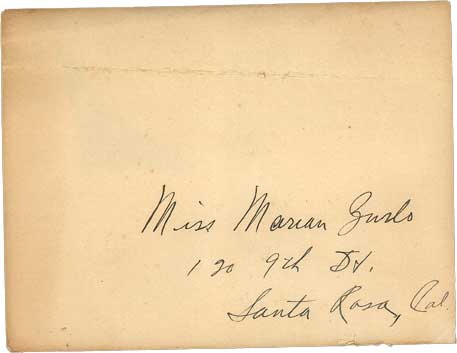 Miss Marian Zurlo
120 9th St.
Santa Rosa, Cal.